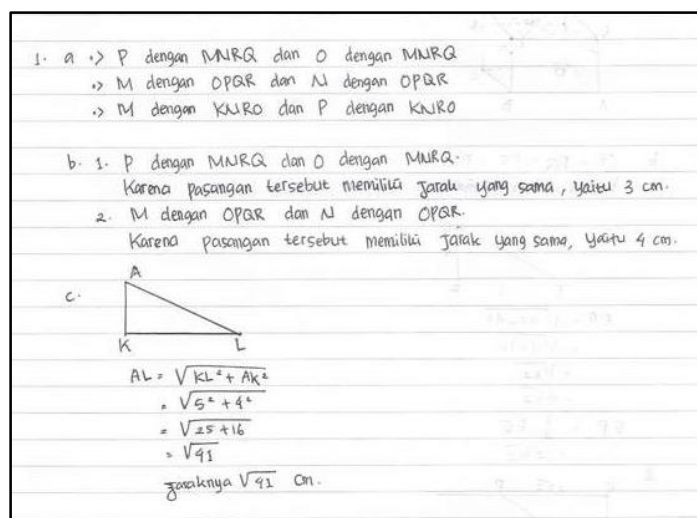 1. a •> P dengan MNRQ dan O dengan MNRQ
•> M dengan OPQR dan N dengan OPQR
•> M dengan KNRO dan P dengan KNRO
b. 1. P dengan MNRQ dan O dengan MNRQ.
Karena pasangan tersebut memiliki jarak yang sama, yaitu 3 cm.
2. M dengan OPQR dan N dengan OPQR.
Karena pasangan tersebut memiliki jarak yang sama, yaitu 4 cm.
c.
A
K L
AL = √KL² + AK²
= √5² + 4²
= √25 + 16
= √41
Jaraknya √41 cm.